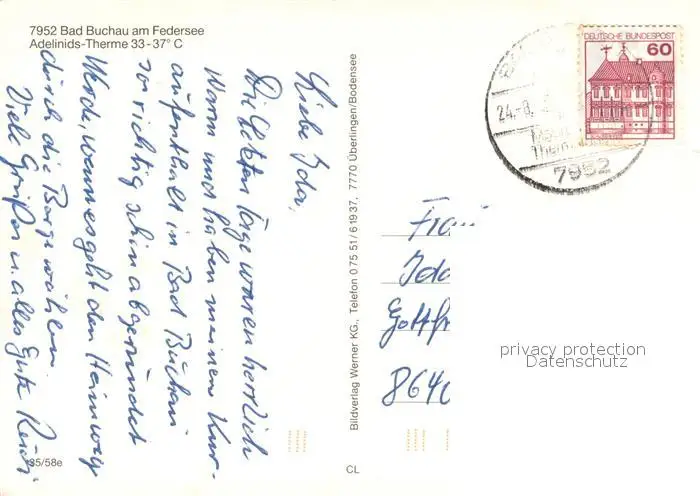 7952 Bad Buchau am Federsee
Adelinids-Therme 33-37° C
Liebe Ida,
Die letzten Tage waren herrlich
Warm und haben meinen Kur-
aufenthalt in Bad Buchau
so richtig schön abgerundet
Werde, wenn es geht den Heimweg
durch die Berge wählen.
Viele Grüße u. alles Gute
35/58e
Bildverlag Werner KG., Telefon 0 75 51/6 19 37, 7770 Überlingen/Bodensee
CL
DEUTSCHE BUNDESPOST
60
24.-8.
7952
Frau
Ida
Gottfr
8640
privacy protection
Datenschutz